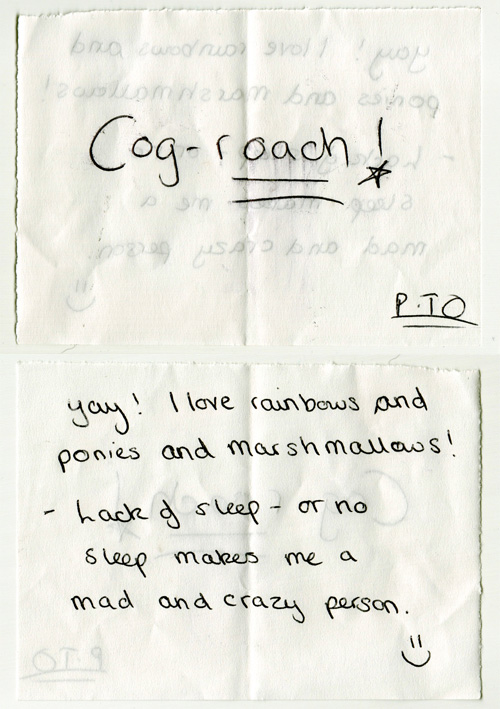 Cog-roach!
P.TO
yay! I love rainbows and
ponies and marshmallows!
- Lack of sleep - or no
sleep makes me a
mad and crazy person.